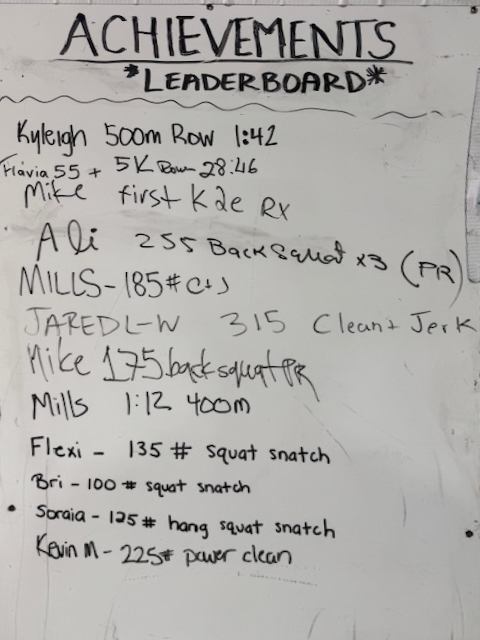 ACHIEVEMENTS
*LEADERBOARD*
Kyleigh 500m Row 1:42
Flavia 55+ 5K Row 28:46
Mike first K2e Rx
Ali 255 Back Squat x3 (PR)
MILLS - 185# C+J
JARED L-W 315 Clean + Jerk
Mike 175 back squat PR
Mills 1:12 400m
Flexi - 135 # squat snatch
Bri - 100 # squat snatch
• Soraia - 125# hang squat snatch
Kevin M - 225# power clean